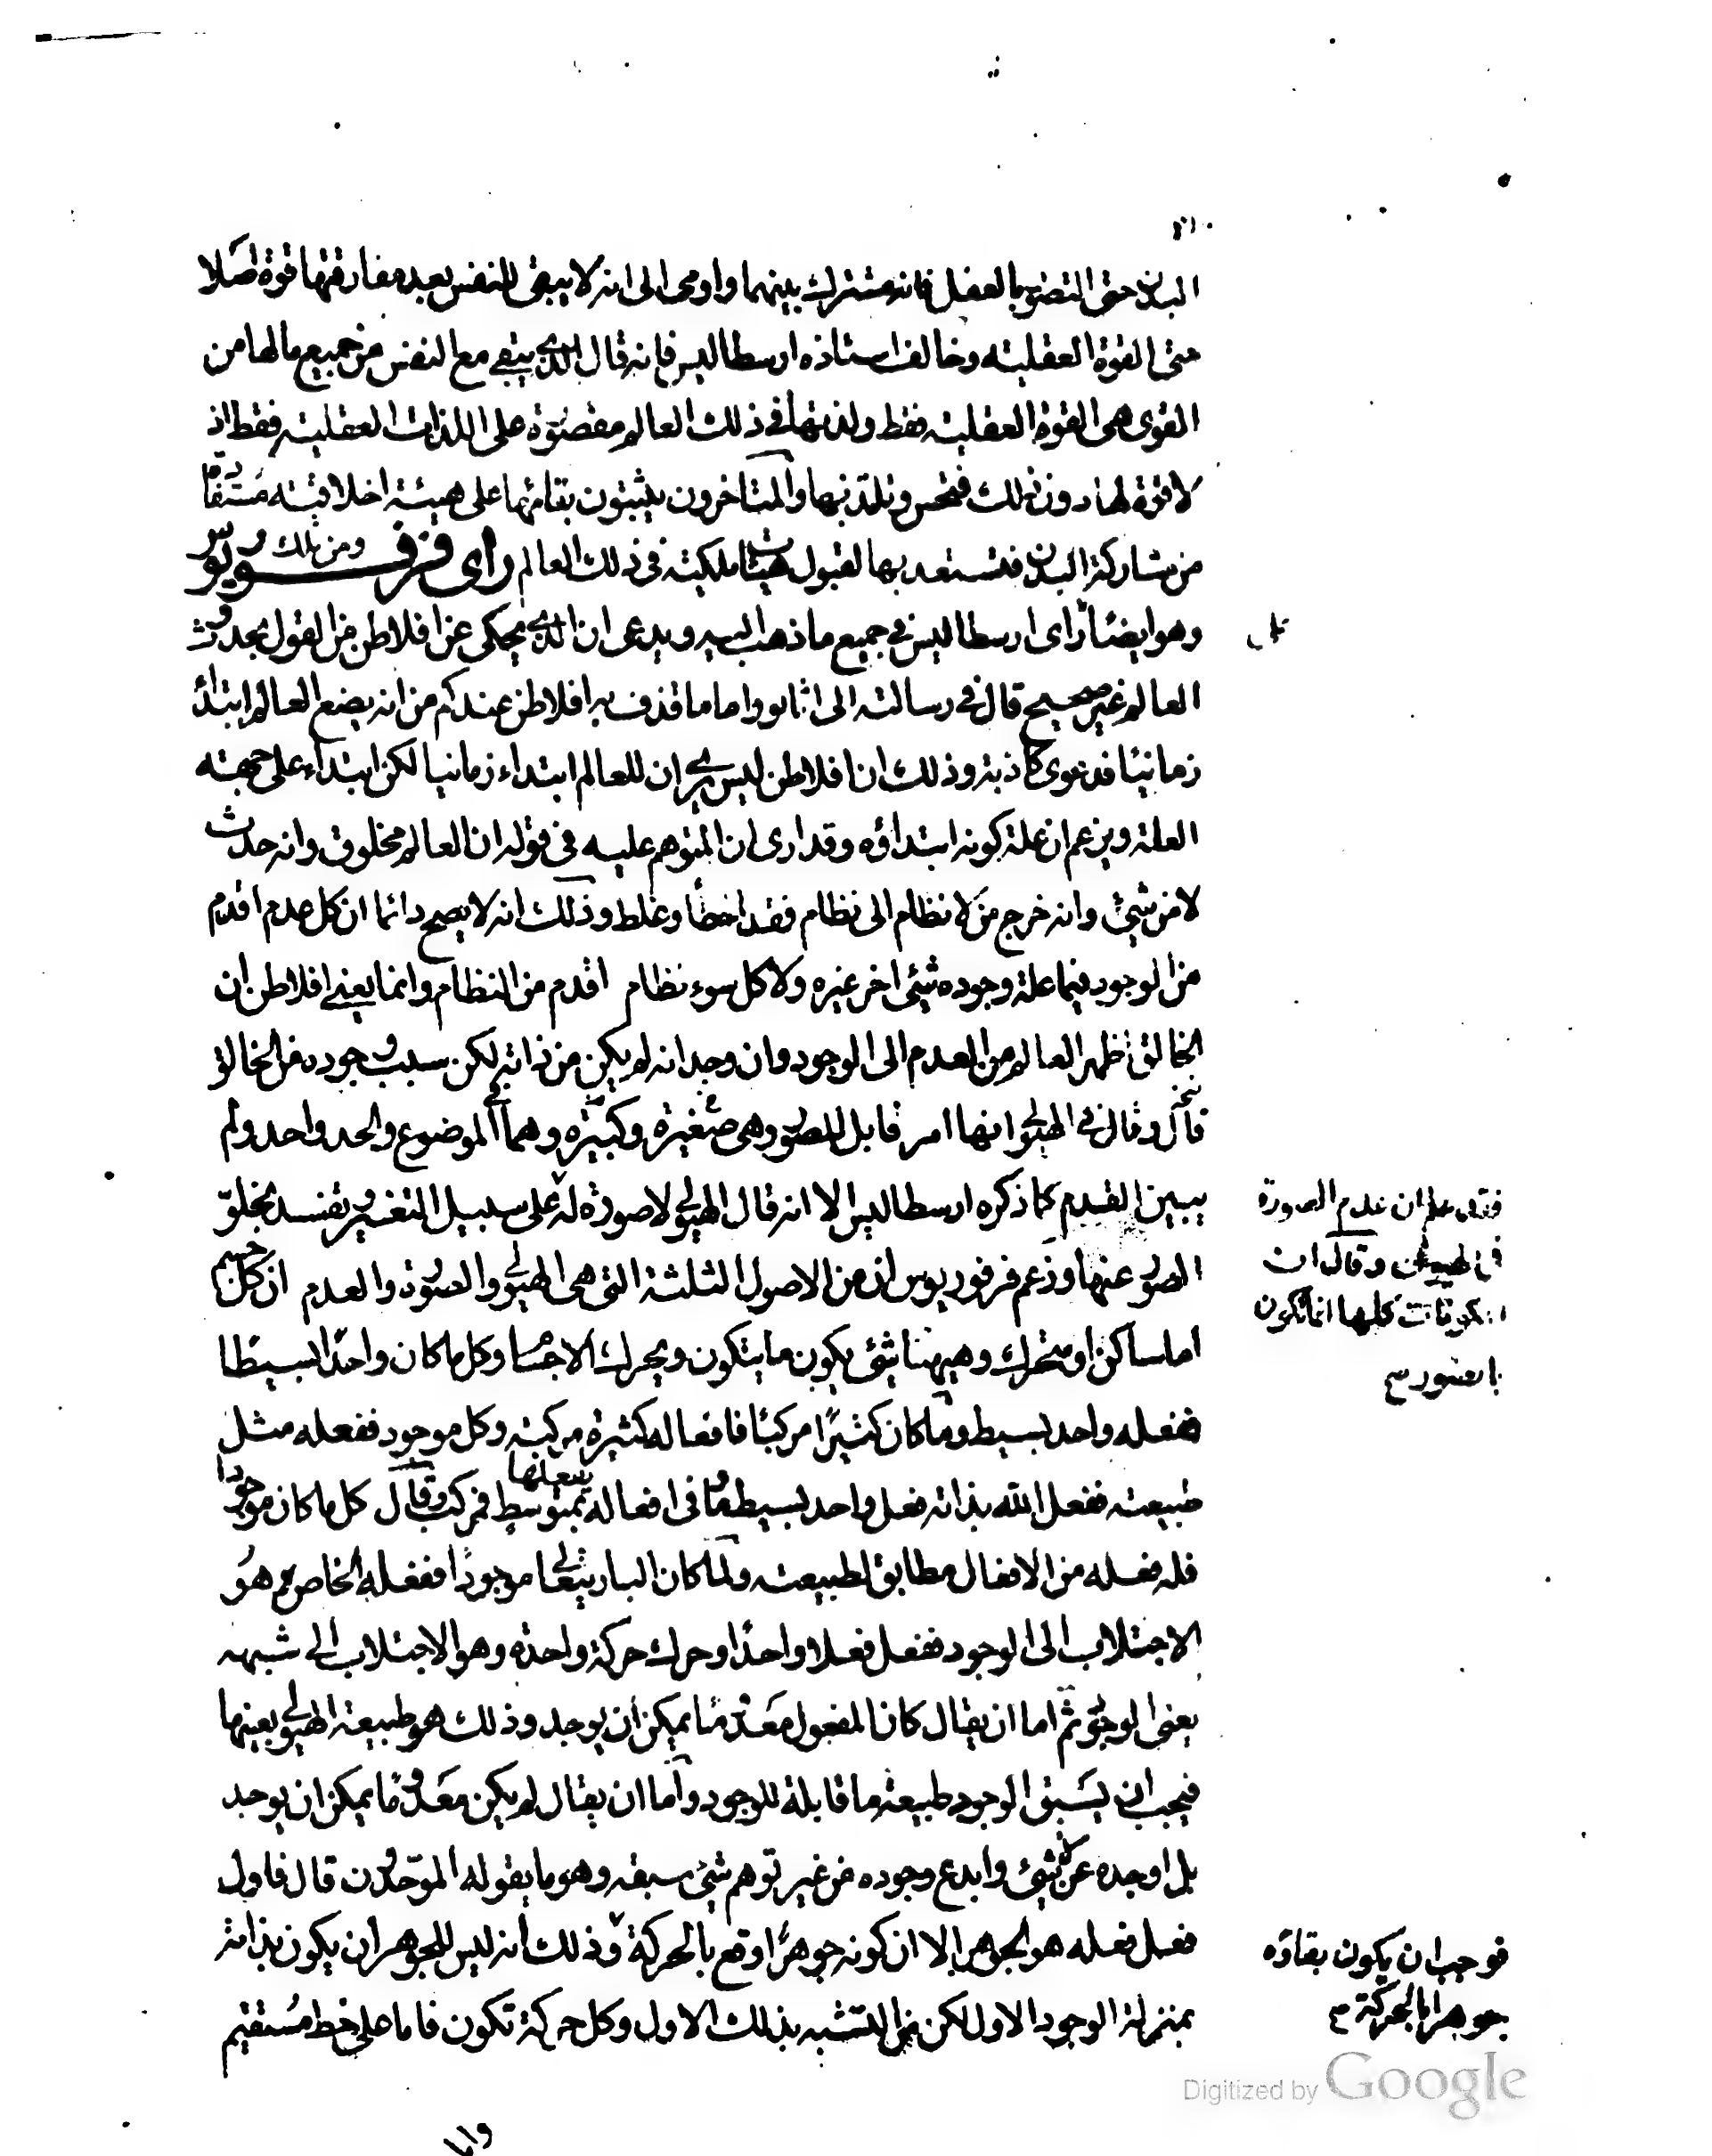 البدن حتى التصور بالعقل فانه مشترك بينهما واومى الى انه لا يبقى للنفس بعد مفارقتها قوة اصلا
حتى القوة العقلية وخالف استاذه ارسطاليس فانه قال الذى يبقى مع النفس من جميع ما لها من
القوى هى القوة العقلية فقط ولذتها فى ذلك العالم مقصورة على اللذات العقلية فقط اذ
لا قوة لها دون ذلك فتحس وتلتذ بها والمتاخرون يثبتون بقائها على هيئة اخلاقية مستفادة
من مشاركة البدن فتستعد بها لقبول هيئات ملكية فى ذلك العالم ومن ذلك راى فرفوريوس
وهو ايضا راى ارسطاليس فى جميع ما ذهب اليه ويدعى ان الذى يحكى عن افلاطن من القول بحدوث
العالم غير صحيح قال فى رسالته الى انابو واما ما قذف به افلاطن عندكم من انه يضع العالم ابتداء
زمانيا فدعوى كاذبة وذلك ان افلاطن ليس يرى ان للعالم ابتداء زمانيا لكن ابتداء على جهة
العلة ويزعم ان علة كونه ابتداؤه وقد ارى ان المتوهم عليه فى قوله ان العالم مخلوق وانه حدث
لا من شئ وانه خرج من لا نظام الى نظام فقد اخطأ وغلط وذلك انه لا يصح دائما ان كل عدم اقدم
من الوجود فيما علة وجوده شئ اخر غيره ولا كل سوء نظام اقدم من النظام وانما يعنى افلاطن ان
الخالق اظهر العالم من العدم الى الوجود وان وجد انه لم يكن من ذاته لكن سبب وجوده من الخالق
قال وقال فى الهيولى انها امر قابل للصور وهى صغيرة وكبيرة وهما فى الموضوع والحد واحد ولم
يبين العدم كما ذكره ارسطاليس الا انه قال الهيولى لا صورة له
فقد علم ان عدم الصورة
فى الهيولى وقال ان
المكونات كلها انما تكون
بالصور
على سبيل التغير وتفسد بخلو
الصور عنها وزعم فرفوريوس ان من الاصول الثلثة التى هى الهيولى والصورة والعدم ان كل جسم
اما ساكن او متحرك وهيهنا شئ يكون ما يتكون ويحرك الاجسام وكل ما كان واحدا بسيطا
ففعله واحد بسيط وما كان كثيرا مركبا فافعاله كثيرة مركبة وكل موجود ففعله مثل
طبيعته ففعل الله بذاته فعل واحد بسيط وما فى افعاله يفعلها بمتوسط فمركب وقال كل ما كان موجودا
فله فعله من الافعال مطابق لطبيعته ولما كان البارى تعالى موجودا ففعله الخاص هو
الاجتلاب الى الوجود ففعل فعلا واحدا وحرك حركة واحدة وهو الاجتلاب الى شبهه
يعنى الوجود ثم اما ان يقال كان المفعول معدوما يمكن ان يوجد وذلك هو طبيعة الهيولى بعينها
فيجب ان يسبق الوجود طبيعة ما قابلة للوجود واما ان يقال لم يكن معدوما يمكن ان يوجد
بل اوجده عن لا شئ وابدع وجوده من غير توهم شئ سبقه وهو ما يقوله الموحدون قال فاول
فعل فعله هو الجوهر الا ان كونه جوهرا وقع بالحركة
فوجب ان يكون بقاؤه
جوهرا بالحركة
وذلك انه ليس للجوهر ان يكون بذاته
بمنزلة الوجود الاول لكن من التشبه بذلك الاول وكل حركة تكون فاما على خط مستقيم
واما
Digitized by Google